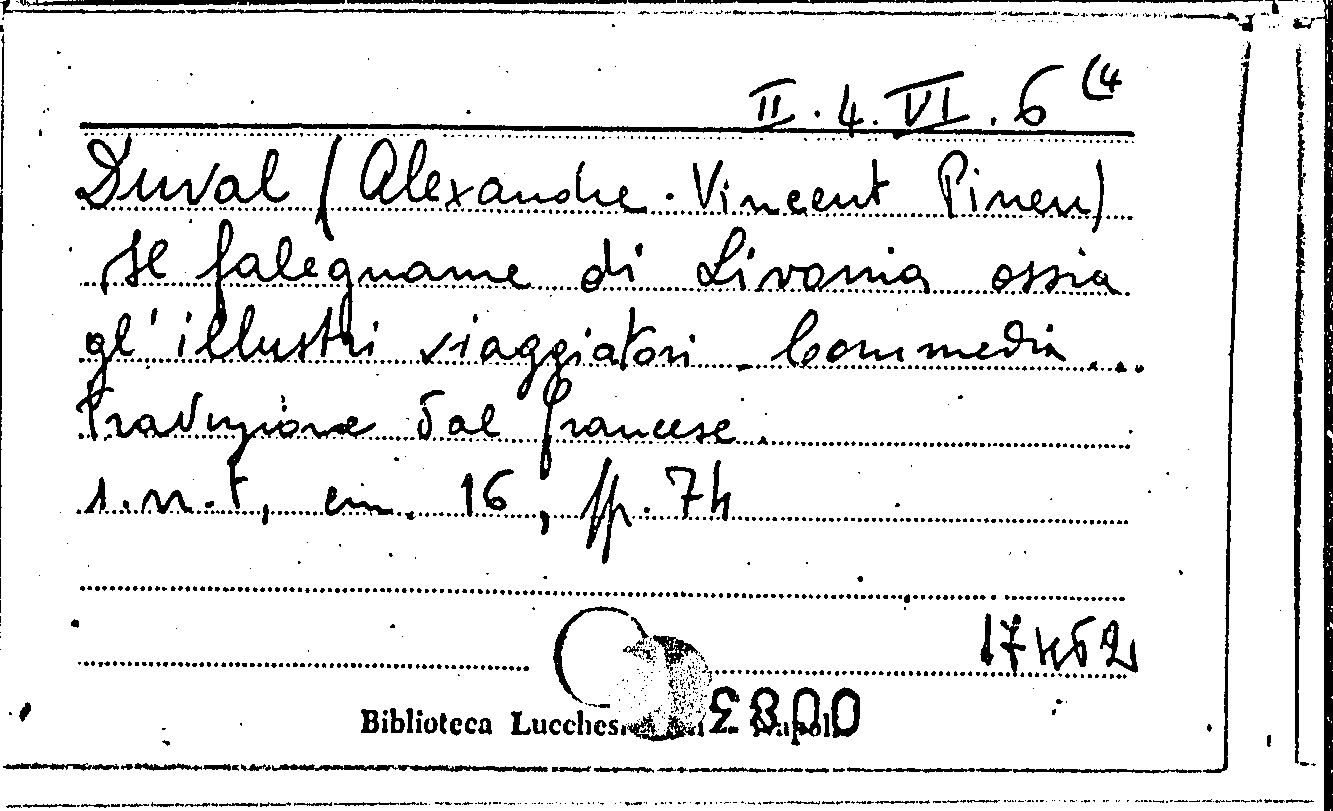 II. 4. VI. 6 (4
Duval (Alexandre-Vincent Pineu)
Il falegname di Livonia ossia
gl'illustri viaggiatori. Commedia...
Traduzione dal francese.
s.n.t, cm. 16, pp. 74
17452
Biblioteca